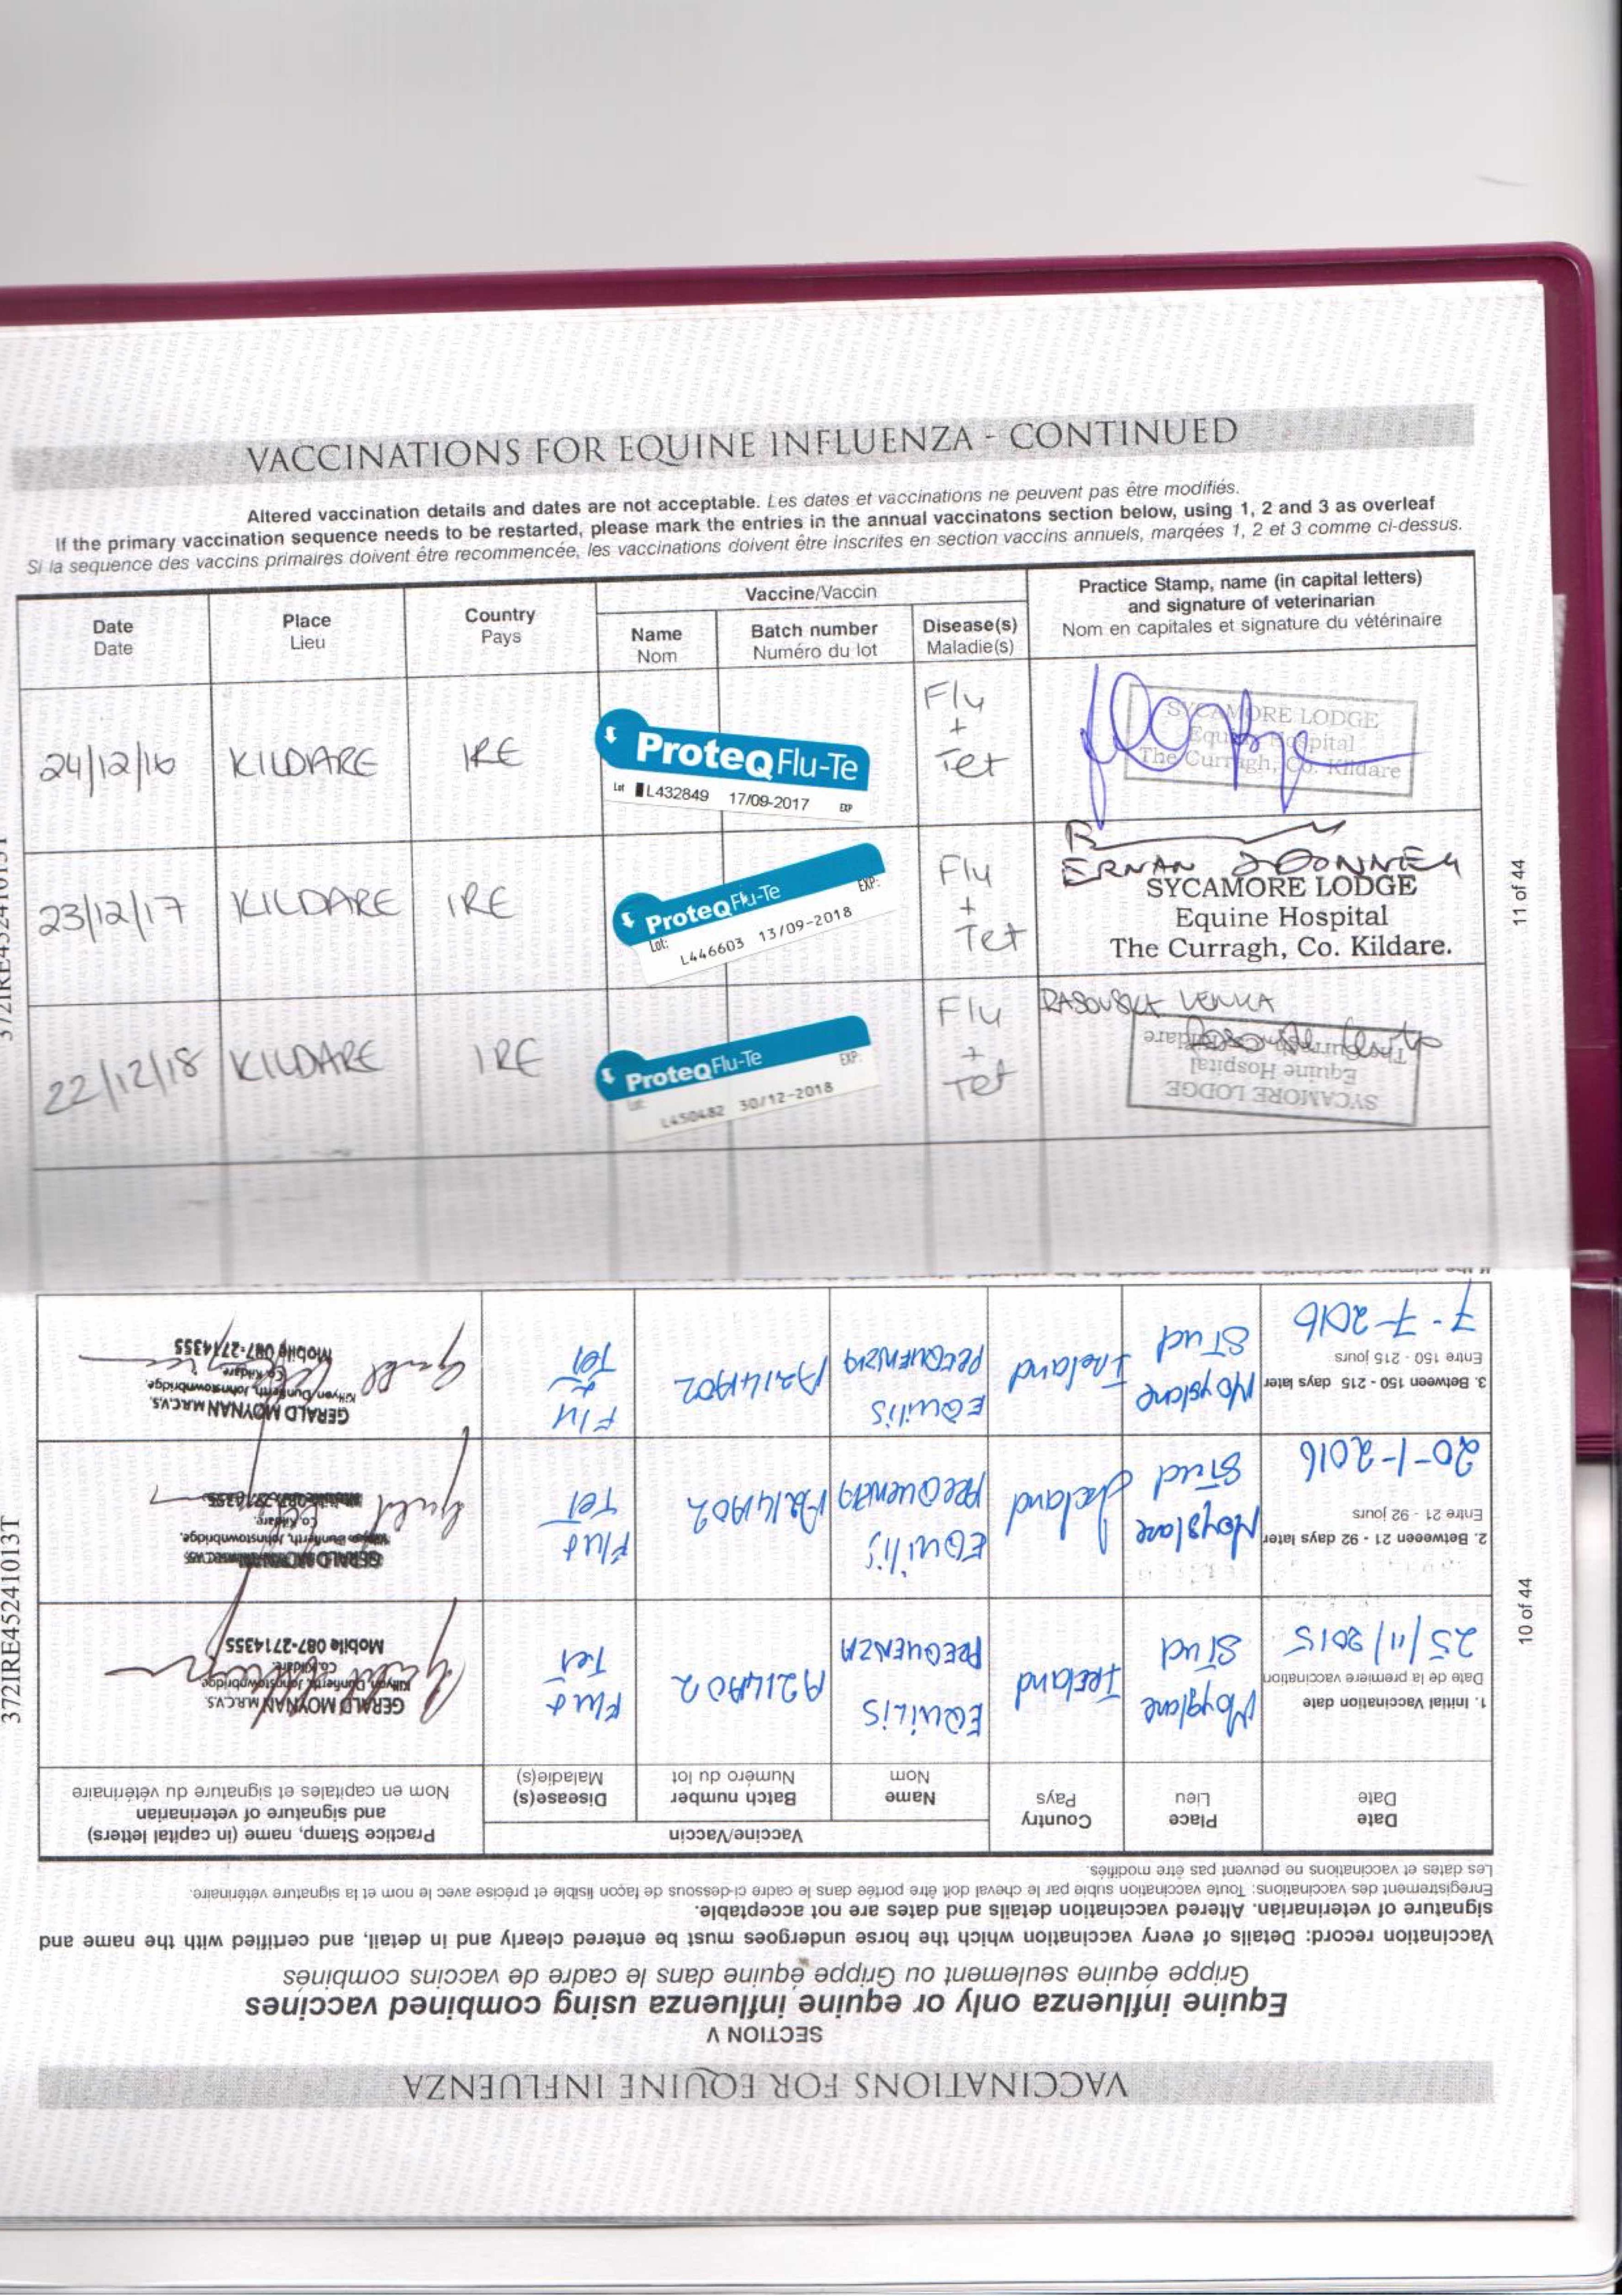 VACCINATIONS FOR EQUINE INFLUENZA - CONTINUED
Altered vaccination details and dates are not acceptable. Les dates et vaccinations ne peuvent pas être modifiés.
If the primary vaccination sequence needs to be restarted, please mark the entries in the annual vaccinatons section below, using 1, 2 and 3 as overleaf
Si la sequence des vaccins primaires doivent être recommencée, les vaccinations doivent être inscrites en section vaccins annuels, marqées 1, 2 et 3 comme ci-dessus.
Date
Date
Place
Lieu
Country
Pays
Vaccine/Vaccin
Name
Nom
Batch number
Numéro du lot
Disease(s)
Maladie(s)
Practice Stamp, name (in capital letters)
and signature of veterinarian
Nom en capitales et signature du vétérinaire
24/12/16
KILDARE
IRE
ProteqFlu-Te
Lot L432849 17/09-2017 EXP
Flu
+
Tet
SYCAMORE LODGE
Equine Hospital
The Curragh, Co. Kildare
23/12/17
KILDARE
IRE
ProteqFlu-Te
EXP:
Lot:
L446603 13/09-2018
Flu
+
Tet
ERNAN
SYCAMORE LODGE
Equine Hospital
The Curragh, Co. Kildare.
22/12/18
KILDARE
IRE
ProteqFlu-Te
EXP:
Lot:
L450482 30/12-2018
Flu
+
Tet
SYCAMORE LODGE
Equine Hospital
11 of 44
VACCINATIONS FOR EQUINE INFLUENZA
SECTION V
Equine influenza only or equine influenza using combined vaccines
Grippe équine seulement ou Grippe équine dans le cadre de vaccins combinés
Vaccination record: Details of every vaccination which the horse undergoes must be entered clearly and in detail, and certified with the name and
signature of veterinarian. Altered vaccination details and dates are not acceptable.
Enregistrement des vaccinations: Toute vaccination subie par le cheval doit être portée dans le cadre ci-dessous de façon lisible et précise avec le nom et la signature vétérinaire.
Les dates et vaccinations ne peuvent pas être modifiés.
Date
Date
Place
Lieu
Country
Pays
Vaccine/Vaccin
Name
Nom
Batch number
Numéro du lot
Disease(s)
Maladie(s)
Practice Stamp, name (in capital letters)
and signature of veterinarian
Nom en capitales et signature du vétérinaire
1. Initial Vaccination date
Date de la premiere vaccination
25/11/2015
Moyglare
Stud
Ireland
EQUILIS
PREQUENZA
A214A02
Flu +
Tet
GERALD MOYNAN M.R.C.V.S.
Killyon, Dunferth, Johnstownbridge,
Co. Kildare.
Mobile 087-2714355
2. Betweeen 21 - 92 days later
Entre 21 - 92 jours
20-1-2016
Moyglare
Stud
Ireland
EQUILIS
PREQUENZA
A214A02
Flu +
Tet
Dunferth, Johnstownbridge,
Co. Kildare.
3. Between 150 - 215 days later
Entre 150 - 215 jours
7-7-2016
Moyglare
Stud
Ireland
EQUILIS
PREQUENZA
A214A02
Flu
+
Tet
GERALD MOYNAN M.R.C.V.S.
Killyon, Dunferth, Johnstownbridge,
Co. Kildare
Mobile 087-2714355
10 of 44
372IRE45241013T